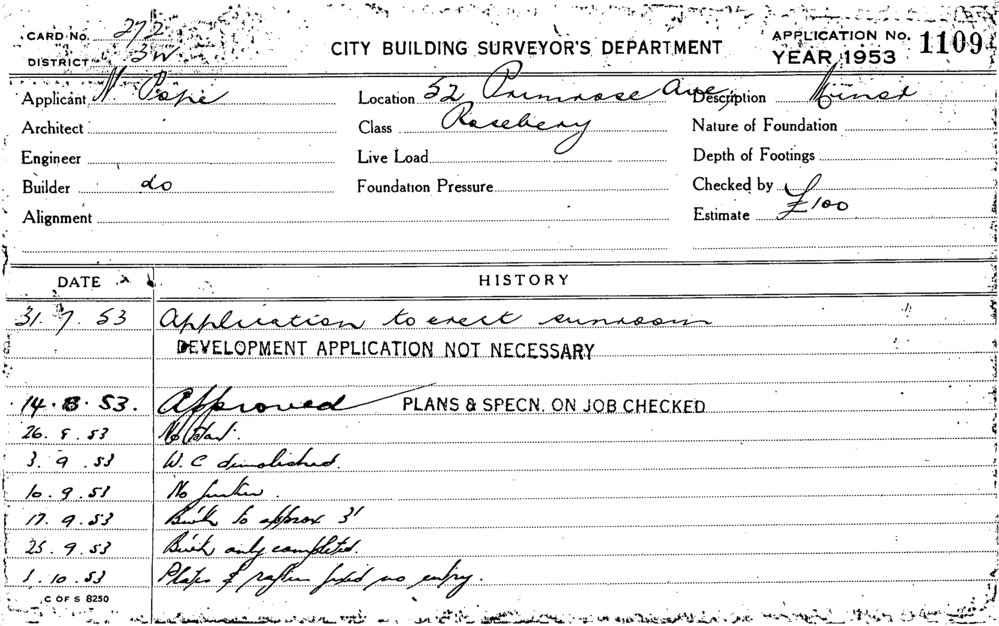 CARD No. 272
DISTRICT 3W
CITY BUILDING SURVEYOR'S DEPARTMENT
APPLICATION No. 1109
YEAR 1953
Applicant N. Pope Location 52 Primrose Ave, Description Minor
Architect Class Rosebery Nature of Foundation
Engineer Live Load Depth of Footings
Builder do Foundation Pressure Checked by
Alignment Estimate £100
DATE HISTORY
31.7.53 Application to erect sunroom
DEVELOPMENT APPLICATION NOT NECESSARY
14.8.53. Approved PLANS & SPECN. ON JOB CHECKED
26.8.53 No Start.
3.9.53 W.C demolished.
10.9.53 No further.
17.9.53 to approx 3'
25.9.53 only completed.
1.10.53 Plates & rafters fixed no entry.
C OF S 8250